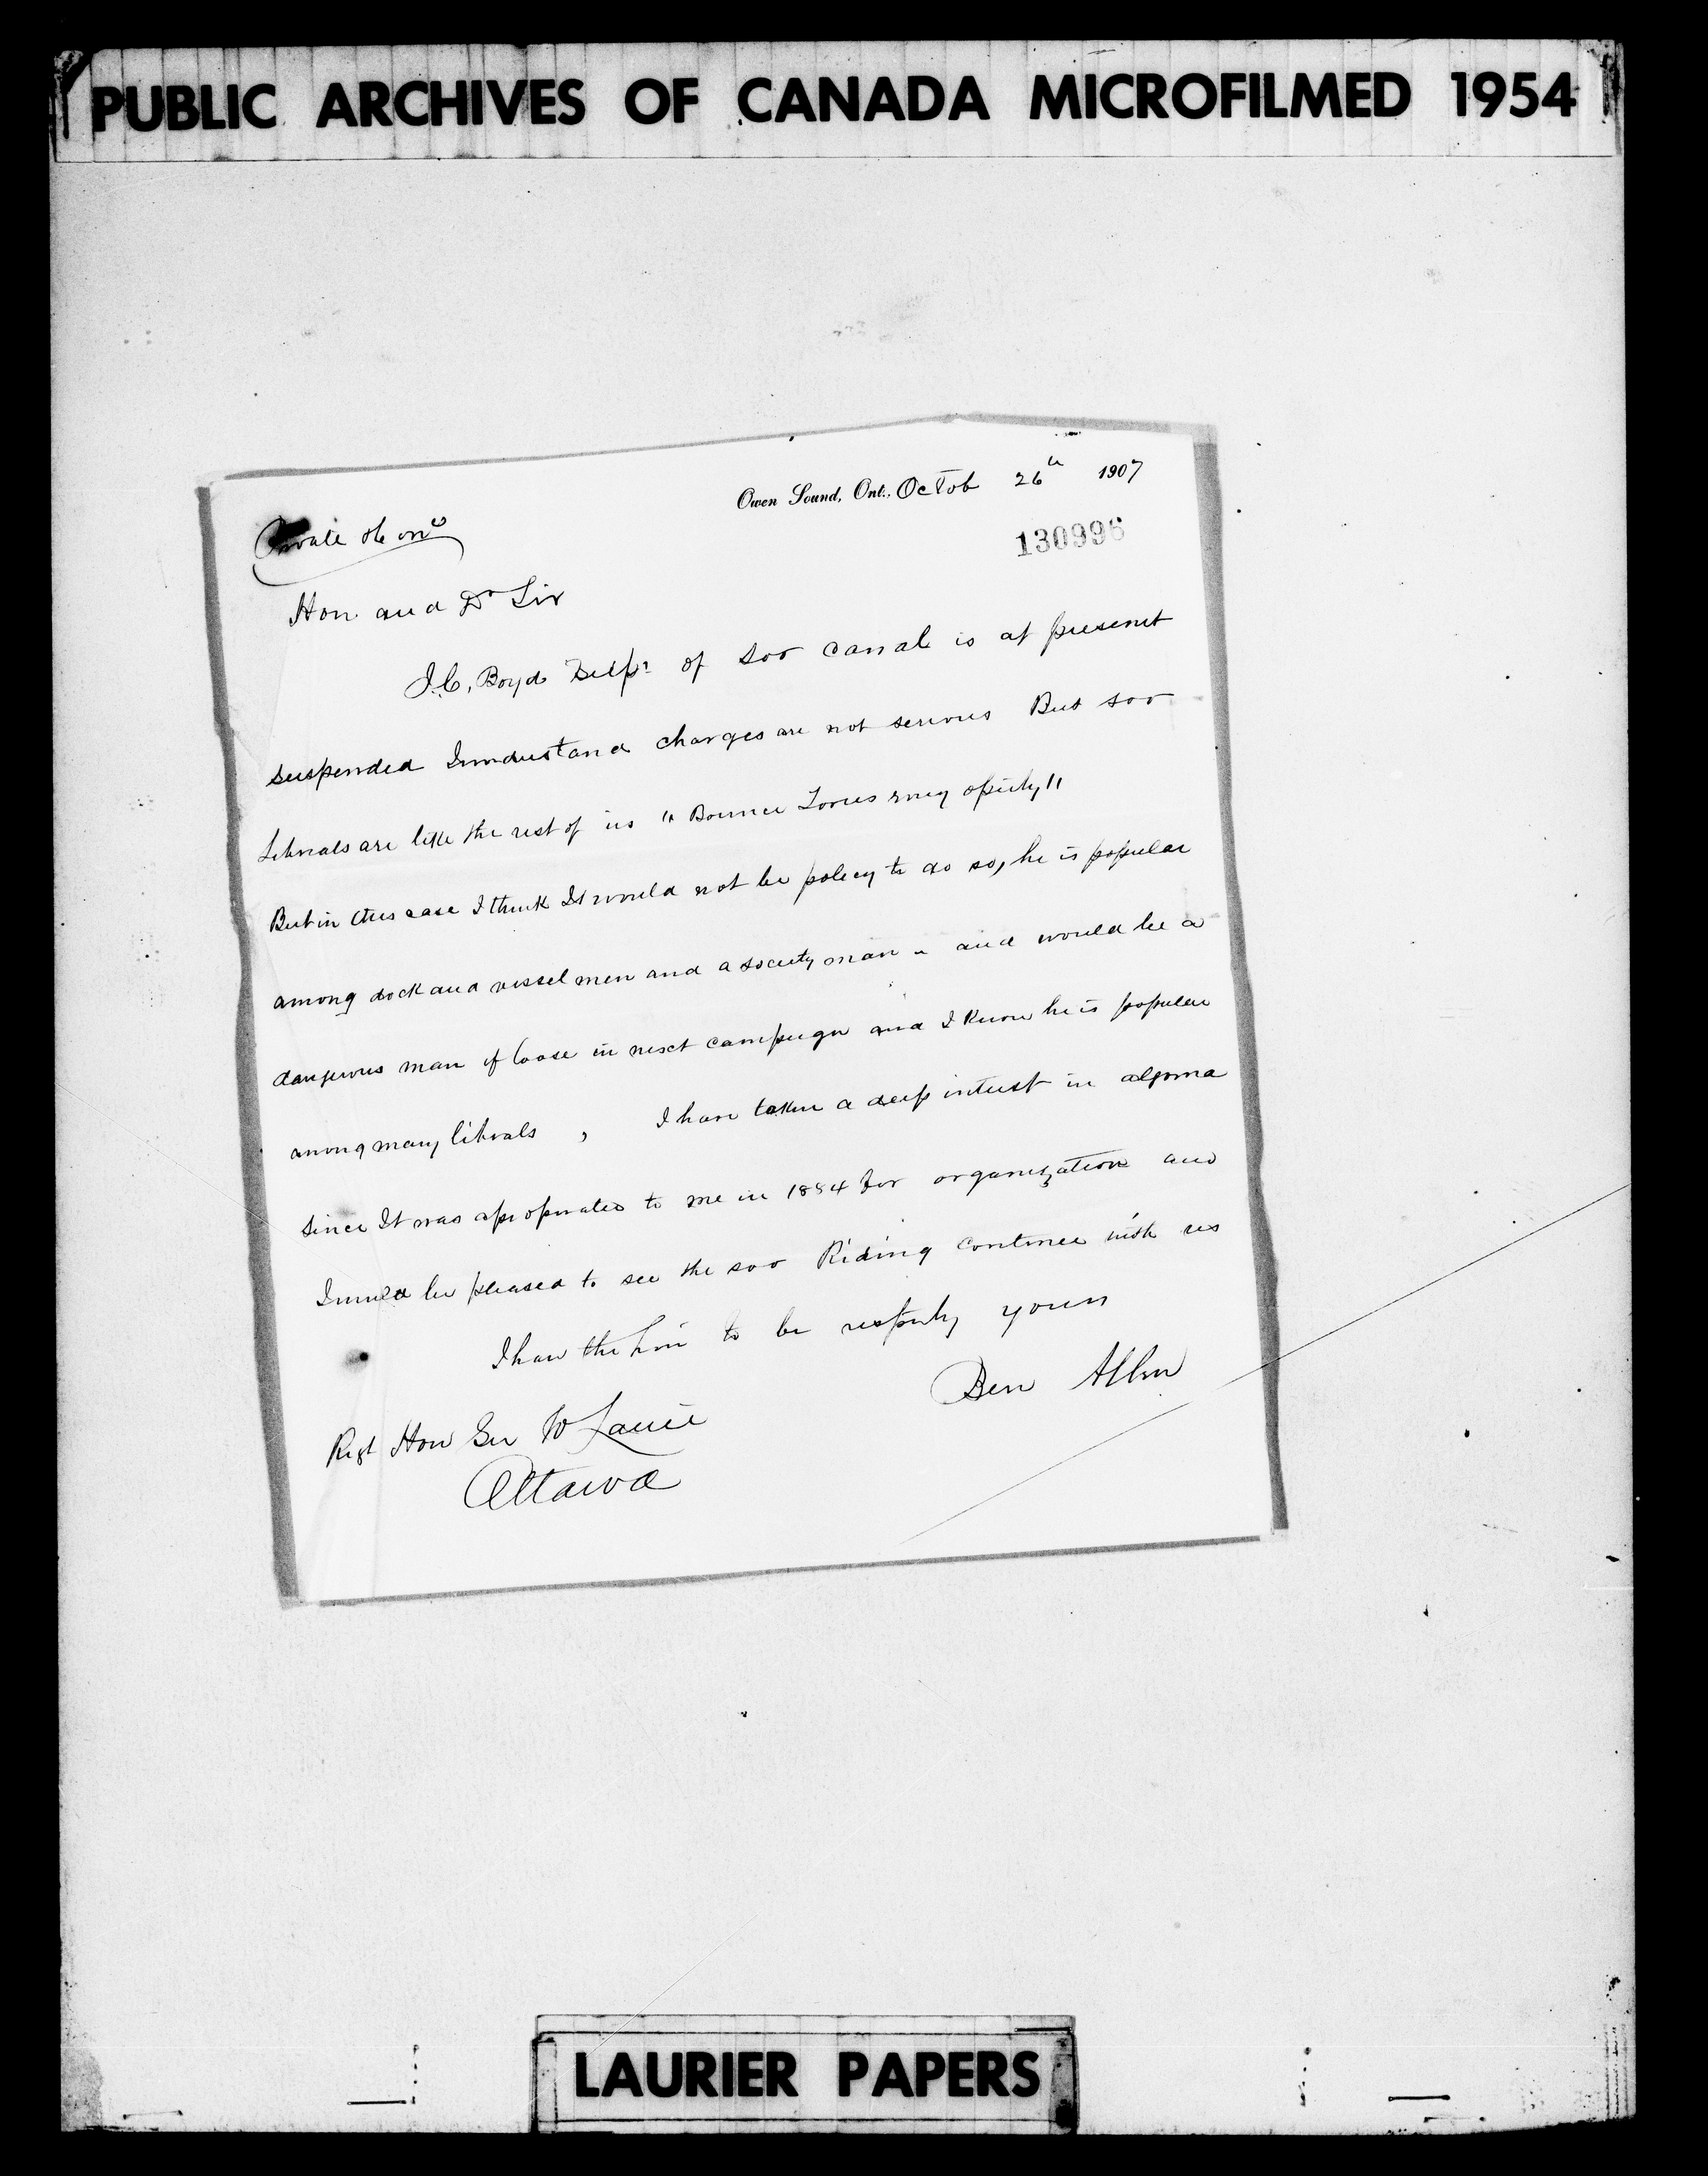 PUBLIC ARCHIVES OF CANADA MICROFILMED 1954
Owen Sound, Ont., Octob 26th 1907
130996
Private
Hon and Dr Sir
J.C. Boyd Supt of Soo Canal is at present
suspended I understand charges are not serious But soo
Liberals are like the rest of us " Bounce Tories
But in this case I think It would not be policy to do so, he is popular
among dock and vessel men and a society man - and would be a
dangerous man if loose in next campaign and I know he is popular
among many liberals , I have taken a deep interest in algoma
since It was to me in 1884 for organization and
I would be pleased to see the soo Riding continue with us
I have the hon to be respectfully yours
Ben Allen
Rigt Hon Sir W Laurier
Ottawa
LAURIER PAPERS